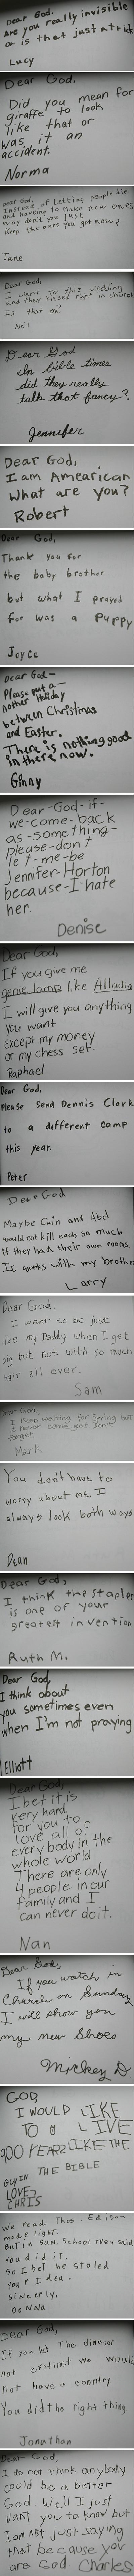 Dear God,
Are you really invisible
or is that just a trick
Lucy
Dear God,
Did you mean for
giraffe to look
like that or
was it an
accident.
Norma
Dear God,
Instead of letting people die
and haveing to make new ones
why don't you just
keep the ones you got now?
Jane
Dear God,
I went to this wedding
and they kissed right in church
Is that ok?
Neil
Dear God
In bible times
did they really
talk that fancy?
Jennifer
Dear God,
I am Amearican
What are you?
Robert
Dear God,
Thank you for
the baby brother
but what I prayed
for was a puppy
Joyce
Dear God-
Please put a-
nother Holiday
between Christmas
and Easter.
There is nothing good
in there now.
Ginny
Dear-God-if-
we-come-back
as-something-
please-don't
let-me-be
Jennifer-Horton
because-I-hate
her.
Denise
Dear God,
If you give me
genie lamp like Alladin
I will give you anything
you want
except my money
or my chess set.
Raphael
Dear God,
Please Send Dennis Clark
to a different camp
this year.
Peter
Dear God
Maybe Cain and Abel
would not kill each so much
if they had their own rooms.
It works with my brother
Larry
Dear God,
I want to be just
like my Daddy when I get
big but not with so much
hair all over.
Sam
Dear God,
I keep waiting for Spring but
it never come yet. Don't
forget.
Mark
You don't have to
worry about me. I
always look both ways
Dean
Dear God,
I think the stapler
is one of your
greatest invention
Ruth M.
Dear God
I think about
you sometimes even
when I'm not praying
Elliott
Dear God,
I bet it is
very hard
for you to
love all of
every body in the
whole world
There are only
4 people in our
family and I
can never do it.
Nan
Dear God,
If you watch in
Church on Sunday
I will show you
my new Shoes
Mickey D.
GOD,
I WOULD LIKE
TO LIVE
900 YEARZ LIKE THE
GUY IN THE BIBLE
LOVE,
CHRIS
We read Thos. Edison
made light.
But in Sun. School they said
you did it.
So I bet he stoled
your Idea.
Sincerly,
Donna
Dear God,
If you let the dinasor
not exstinct we would
not have a country
You did the right thing.
Jonathan
Dear God,
I do not think anybody
could be a better
God Well I just
want you to know but
I am not just saying
that because you
are God Charles